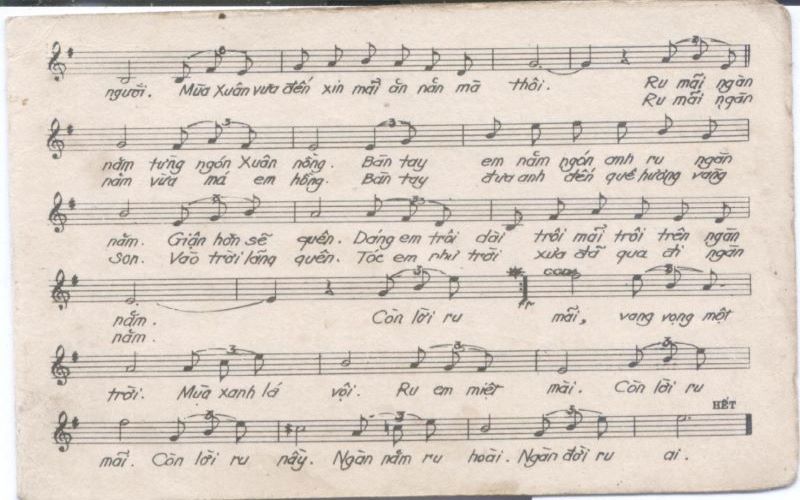 người. Mùa Xuân vừa đến xin mãi ăn năn mà thôi. Ru mãi ngàn
Ru mãi ngàn
năm từng ngón Xuân nồng. Bàn tay em năm ngón anh ru ngàn
năm vừa má em hồng. Bàn tay đưa anh đến quê hương vàng
năm. Giận hờn sẽ quên. Dáng em trôi dài trôi mãi trôi trên ngàn
Son. Vào trời lãng quên. Tóc em như trời xưa đã qua đi ngàn
CODA
năm. Còn lời ru mãi, vang vọng một
năm.
trời. Mùa xanh lá vội. Ru em miệt mài. Còn lời ru
HẾT
mãi. Còn lời ru này. Ngàn năm ru hoài. Ngàn đời ru ai.